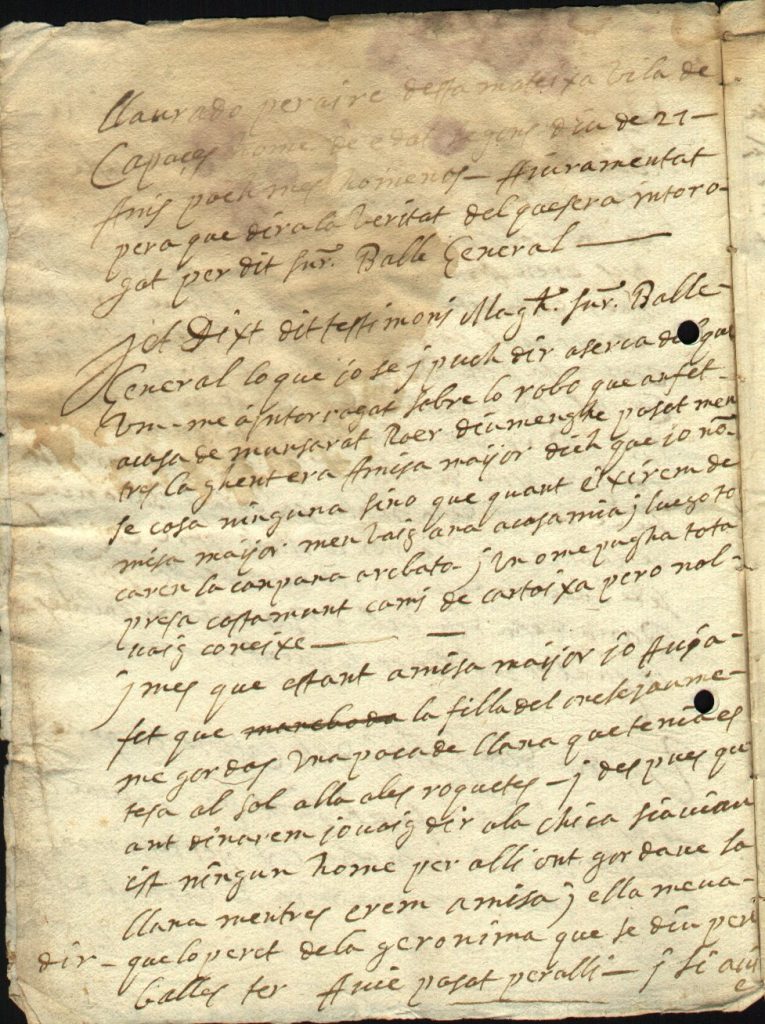 llaurado peraire desta mateixa vila de
Capaces home de edat segons diu de 27
Anis poch mes homenos — Ajuramentat
pera que dira la Veritat del quesera intoro-
gat per dit Sur. Balle General —
jet Dixt dit testimoni Magh. Sur. Balle
General lo que jo se j puch dir aserca del que
Vm. me a intorrogat sobre lo robo que an fet
acasa de munsarat diumenghe pasat men
tres la ghent era Amisa maijor dich que jo no
se cosa ninguna sino que quant exirem de
misa maijor men vaig ana acasa mia j luego to
caren la canpana arebato j Un ome pugha tota
presa costamunt cami de cartoixa pero nol
vaig coneixe —
j mes que estant amisa maijor jo
fet que la filla del jaume
me gordas una poca de llana que tenia es
tesa al sol alla ales roquetes — j despues qu
ant dinarem jo vaig dir ala chica si avian
ist ningun home per alli ont gordave la
llana mentres erem amisa j ella meva
dir — que lo peret dela geronima que se diu pere
Balles ter Avie pasat peralli — j si avi